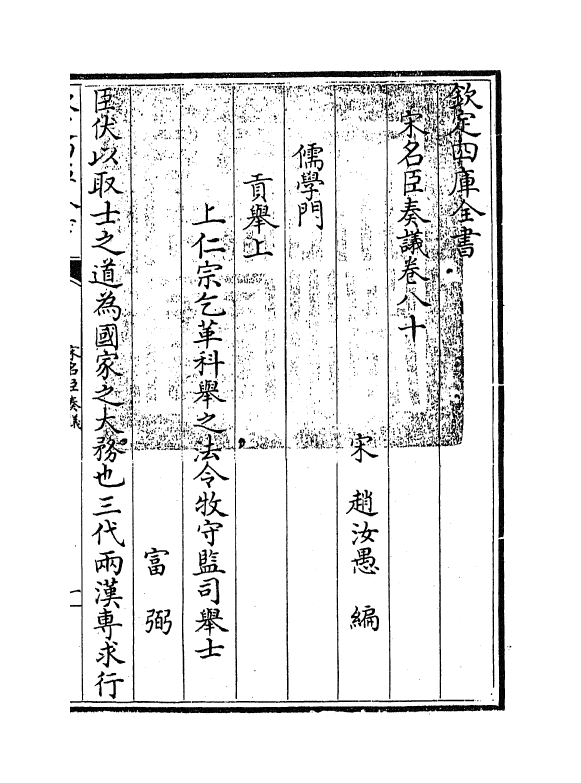 欽定四庫全書
宋名臣奏議卷八十
宋 趙汝愚 編
儒學門
貢舉上
上仁宗乞革科舉之法令牧守監司舉士
富弼
臣伏以取士之道為國家之大務也三代兩漢専求行
宋名臣奏議
一